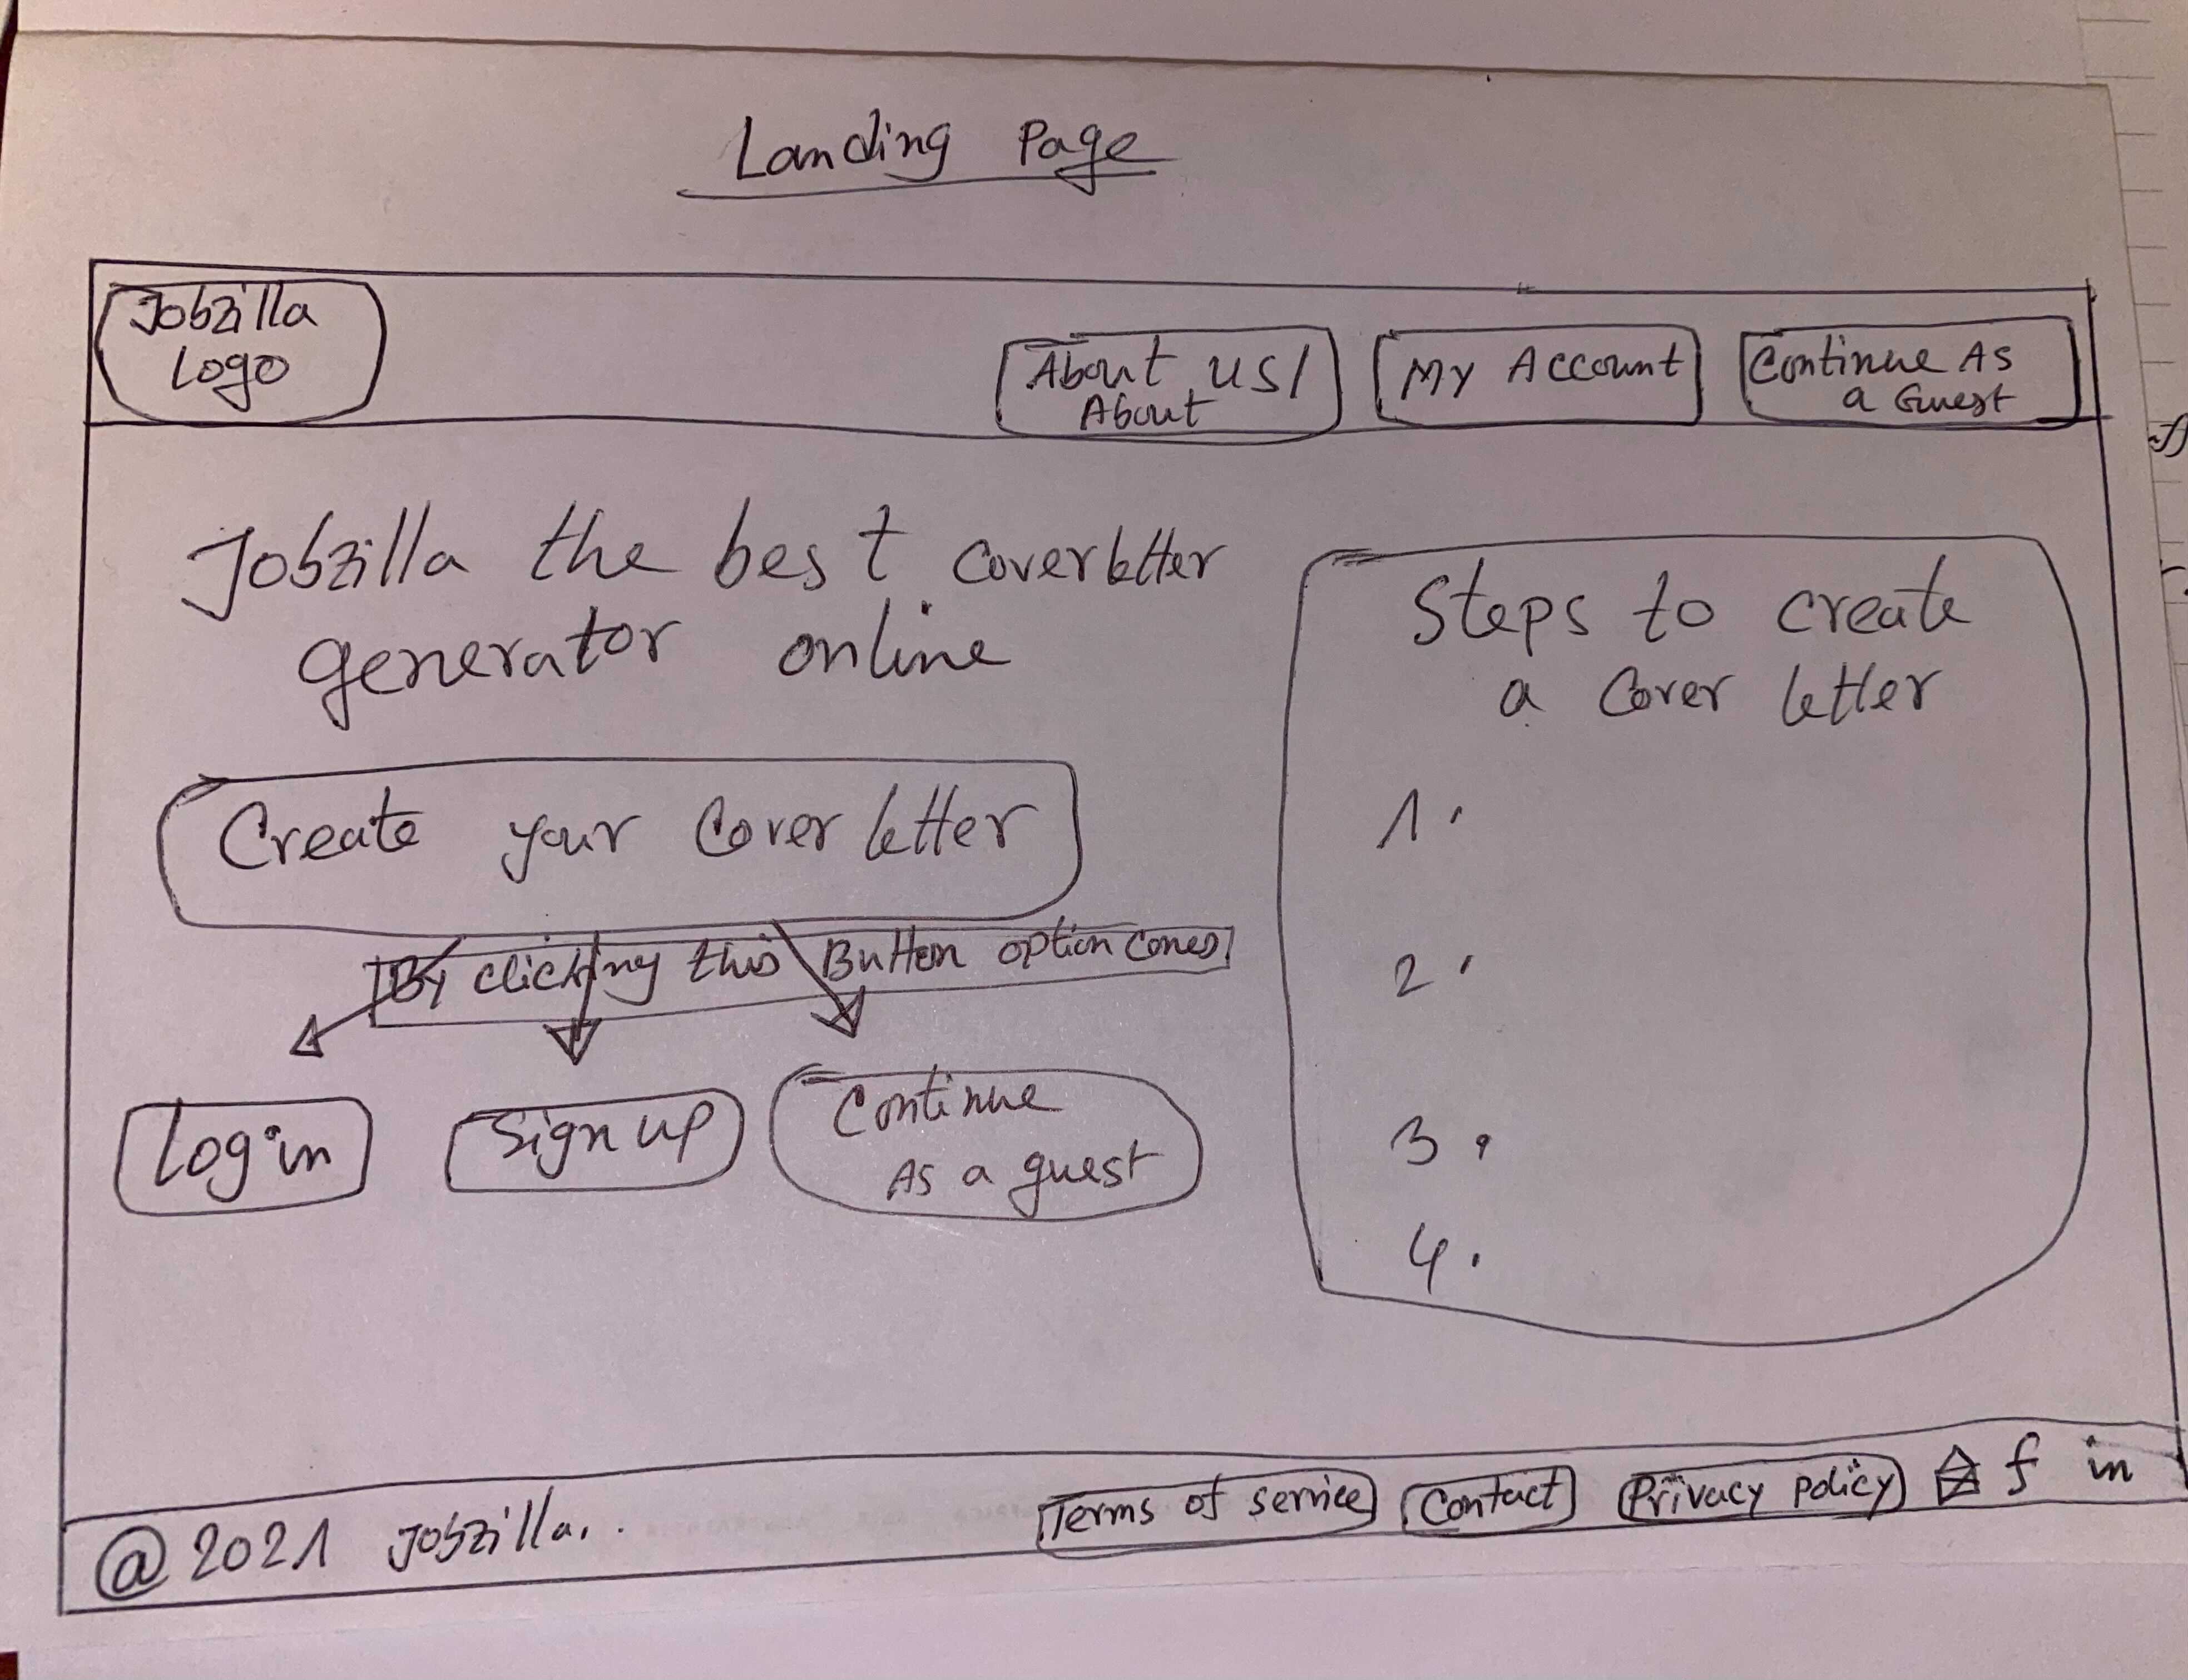 Landing Page
Jobzilla
Logo
About us/
About
My Account
Continue As
a Guest
Jobzilla the best coverletter
generator online
Create your Cover letter
By clicking this Button option comes
Log in
Sign up
Continue
As a guest
Steps to create
a Cover letter
1.
2.
3.
4.
@ 2021 Jobzilla..
Terms of service
Contact
Privacy Policy
f in